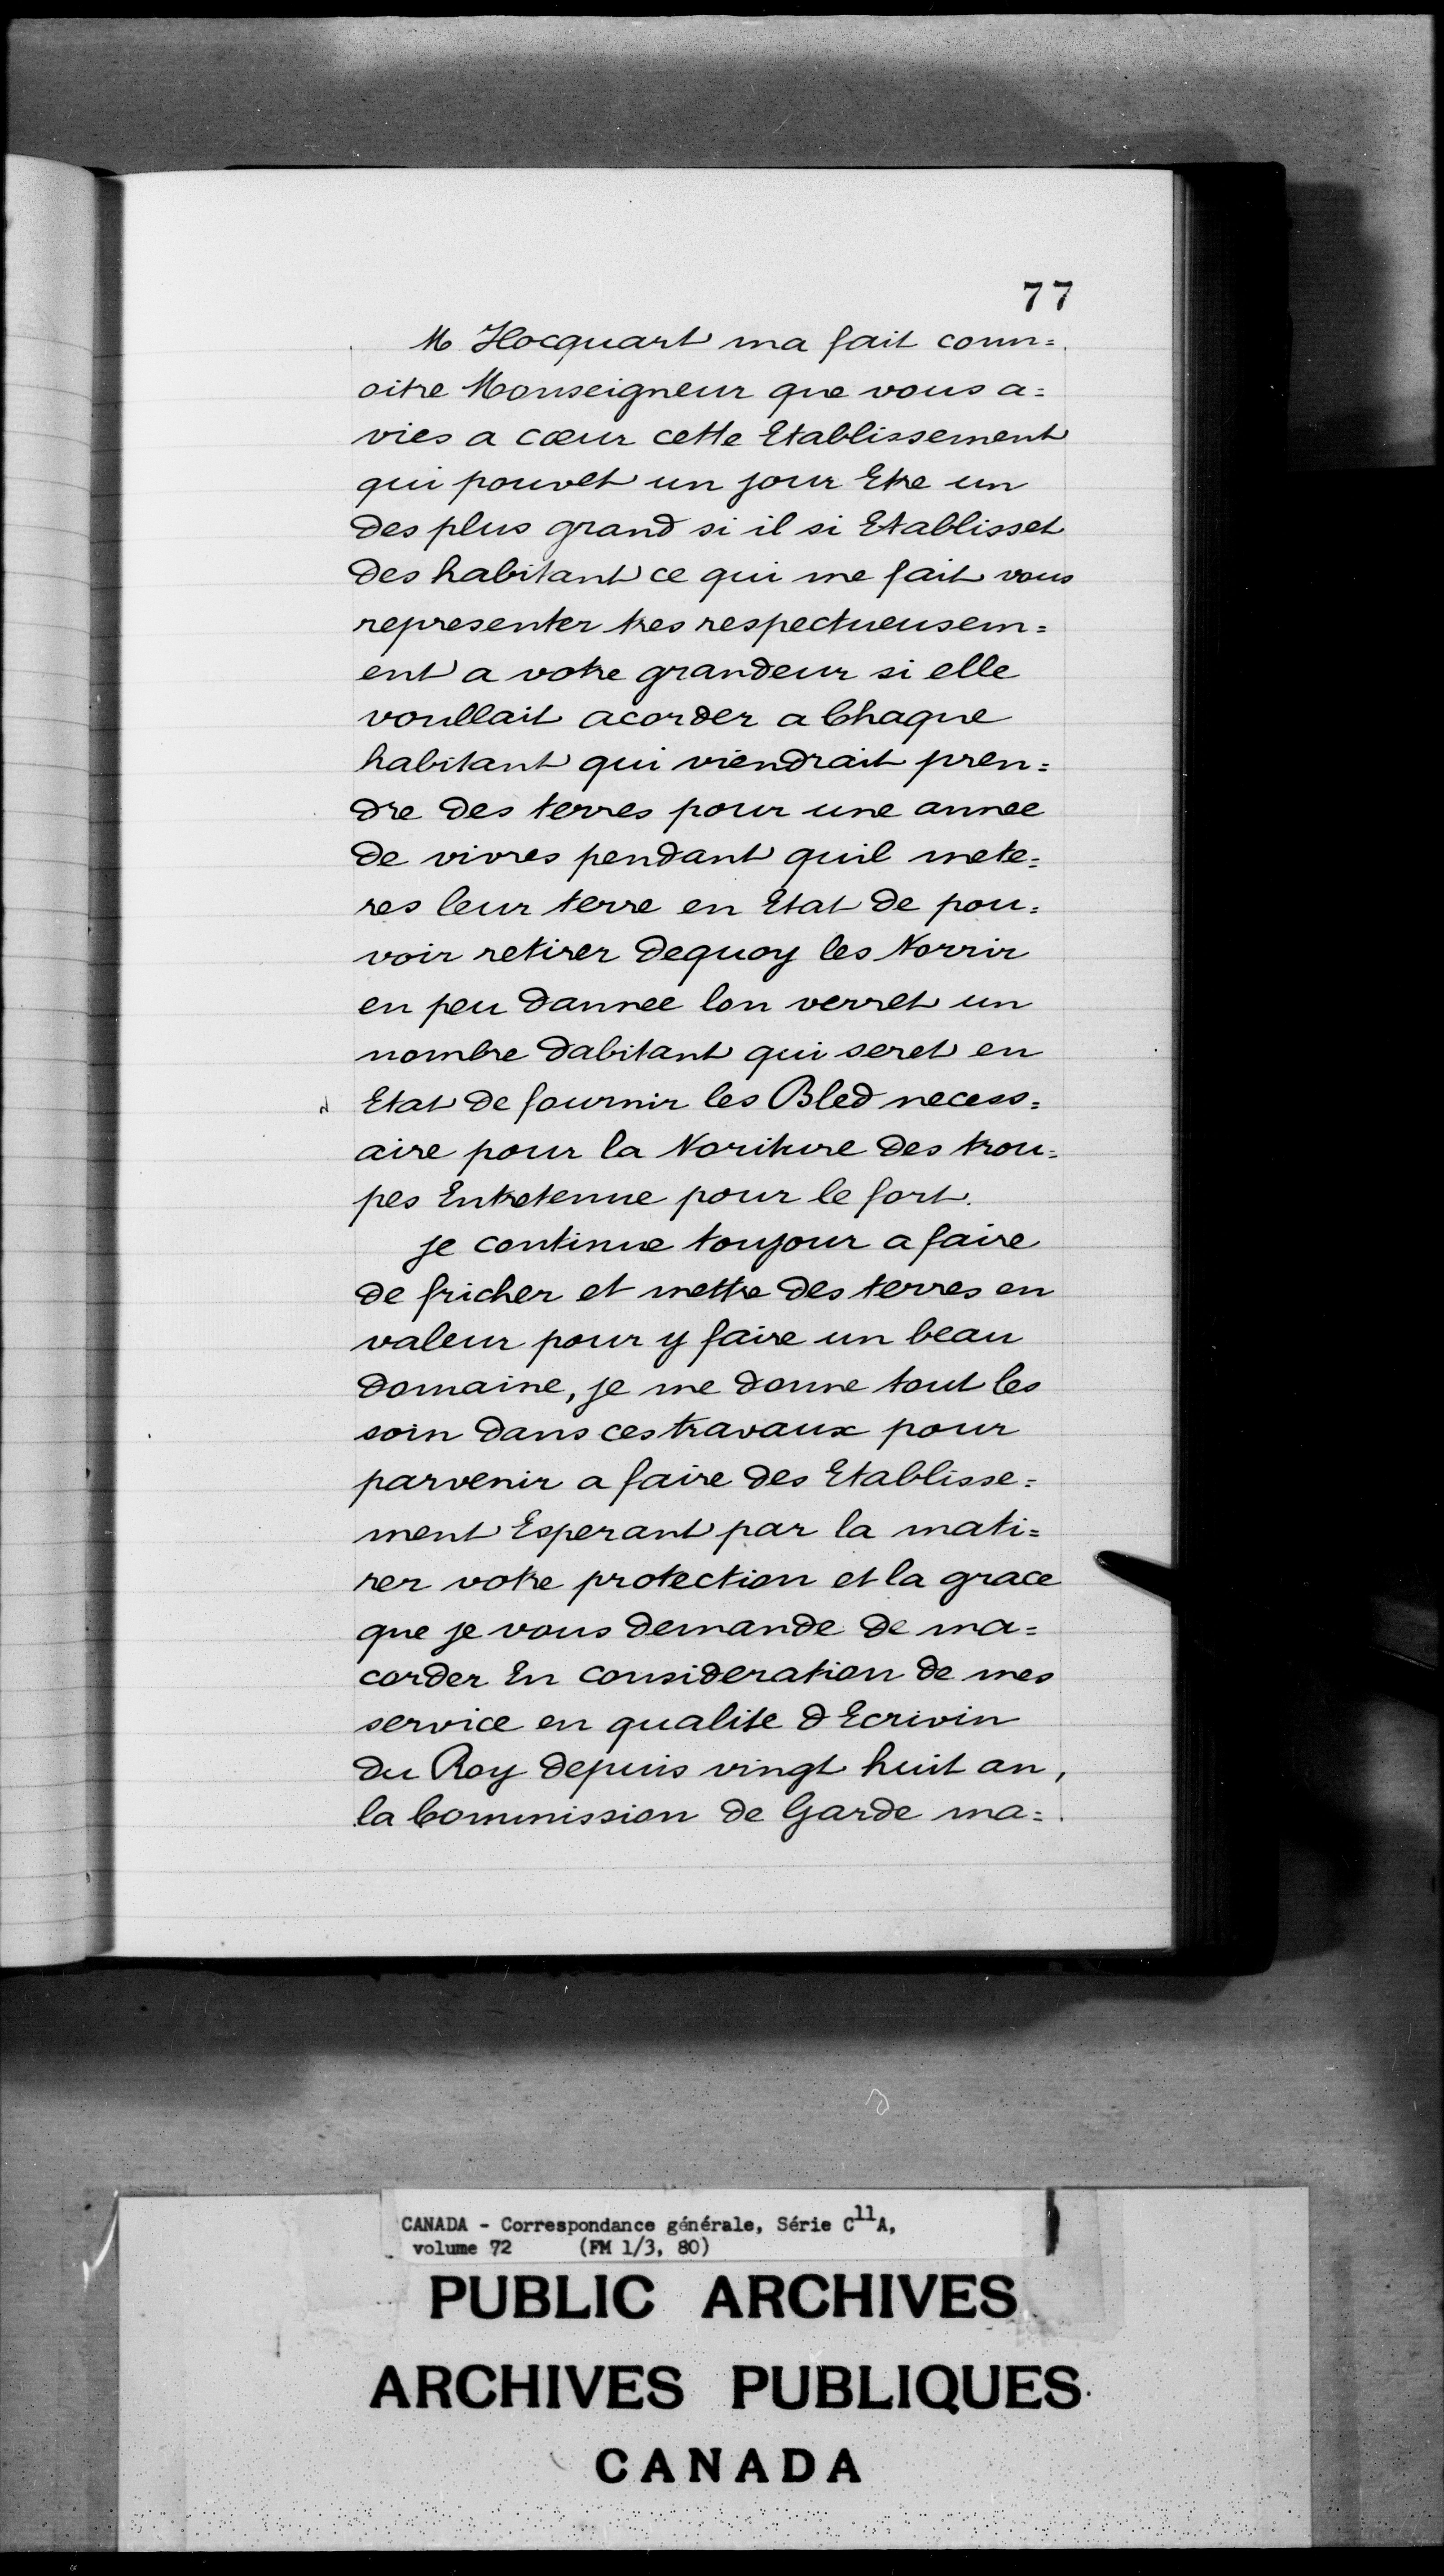 77
M Hocquart ma fait conn=
oitre Monseigneur que vous a=
vies a cœur cette Etablissement
qui pouvet un jour Etre un
des plus grand si il si Etablisset
des habitant ce qui me fait vous
representer tres respectueusem=
ent a votre grandeur si elle
voullait acorder a Chaque
habitant qui viendrait pren=
dre des terres pour une annee
de vivres pendant quil mete=
res leur terre en Etat de pou=
voir retirer dequoy les Norrir
en peu dannee lon verret un
nombre dabitant qui seret en
Etat de fournir les Bled necess=
aire pour la Noriture des trou=
pes Entretenue pour le fort.
je continue toujour a faire
de fricher et mettre des terres en
valeur pour y faire un beau
domaine, je me donne tout les
soin dans ces travaux pour
parvenir a faire des Etablisse=
ment Esperant par la mati=
rer votre protection et la grace
que je vous demande de ma=
corder En consideration de mes
service en qualite d Ecrivin
du Roy depuis vingt huit an,
la Commission de Garde ma=
CANADA - Correspondance générale, Série C11A,
volume 72 (FM 1/3, 80)
PUBLIC ARCHIVES
ARCHIVES PUBLIQUES
CANADA